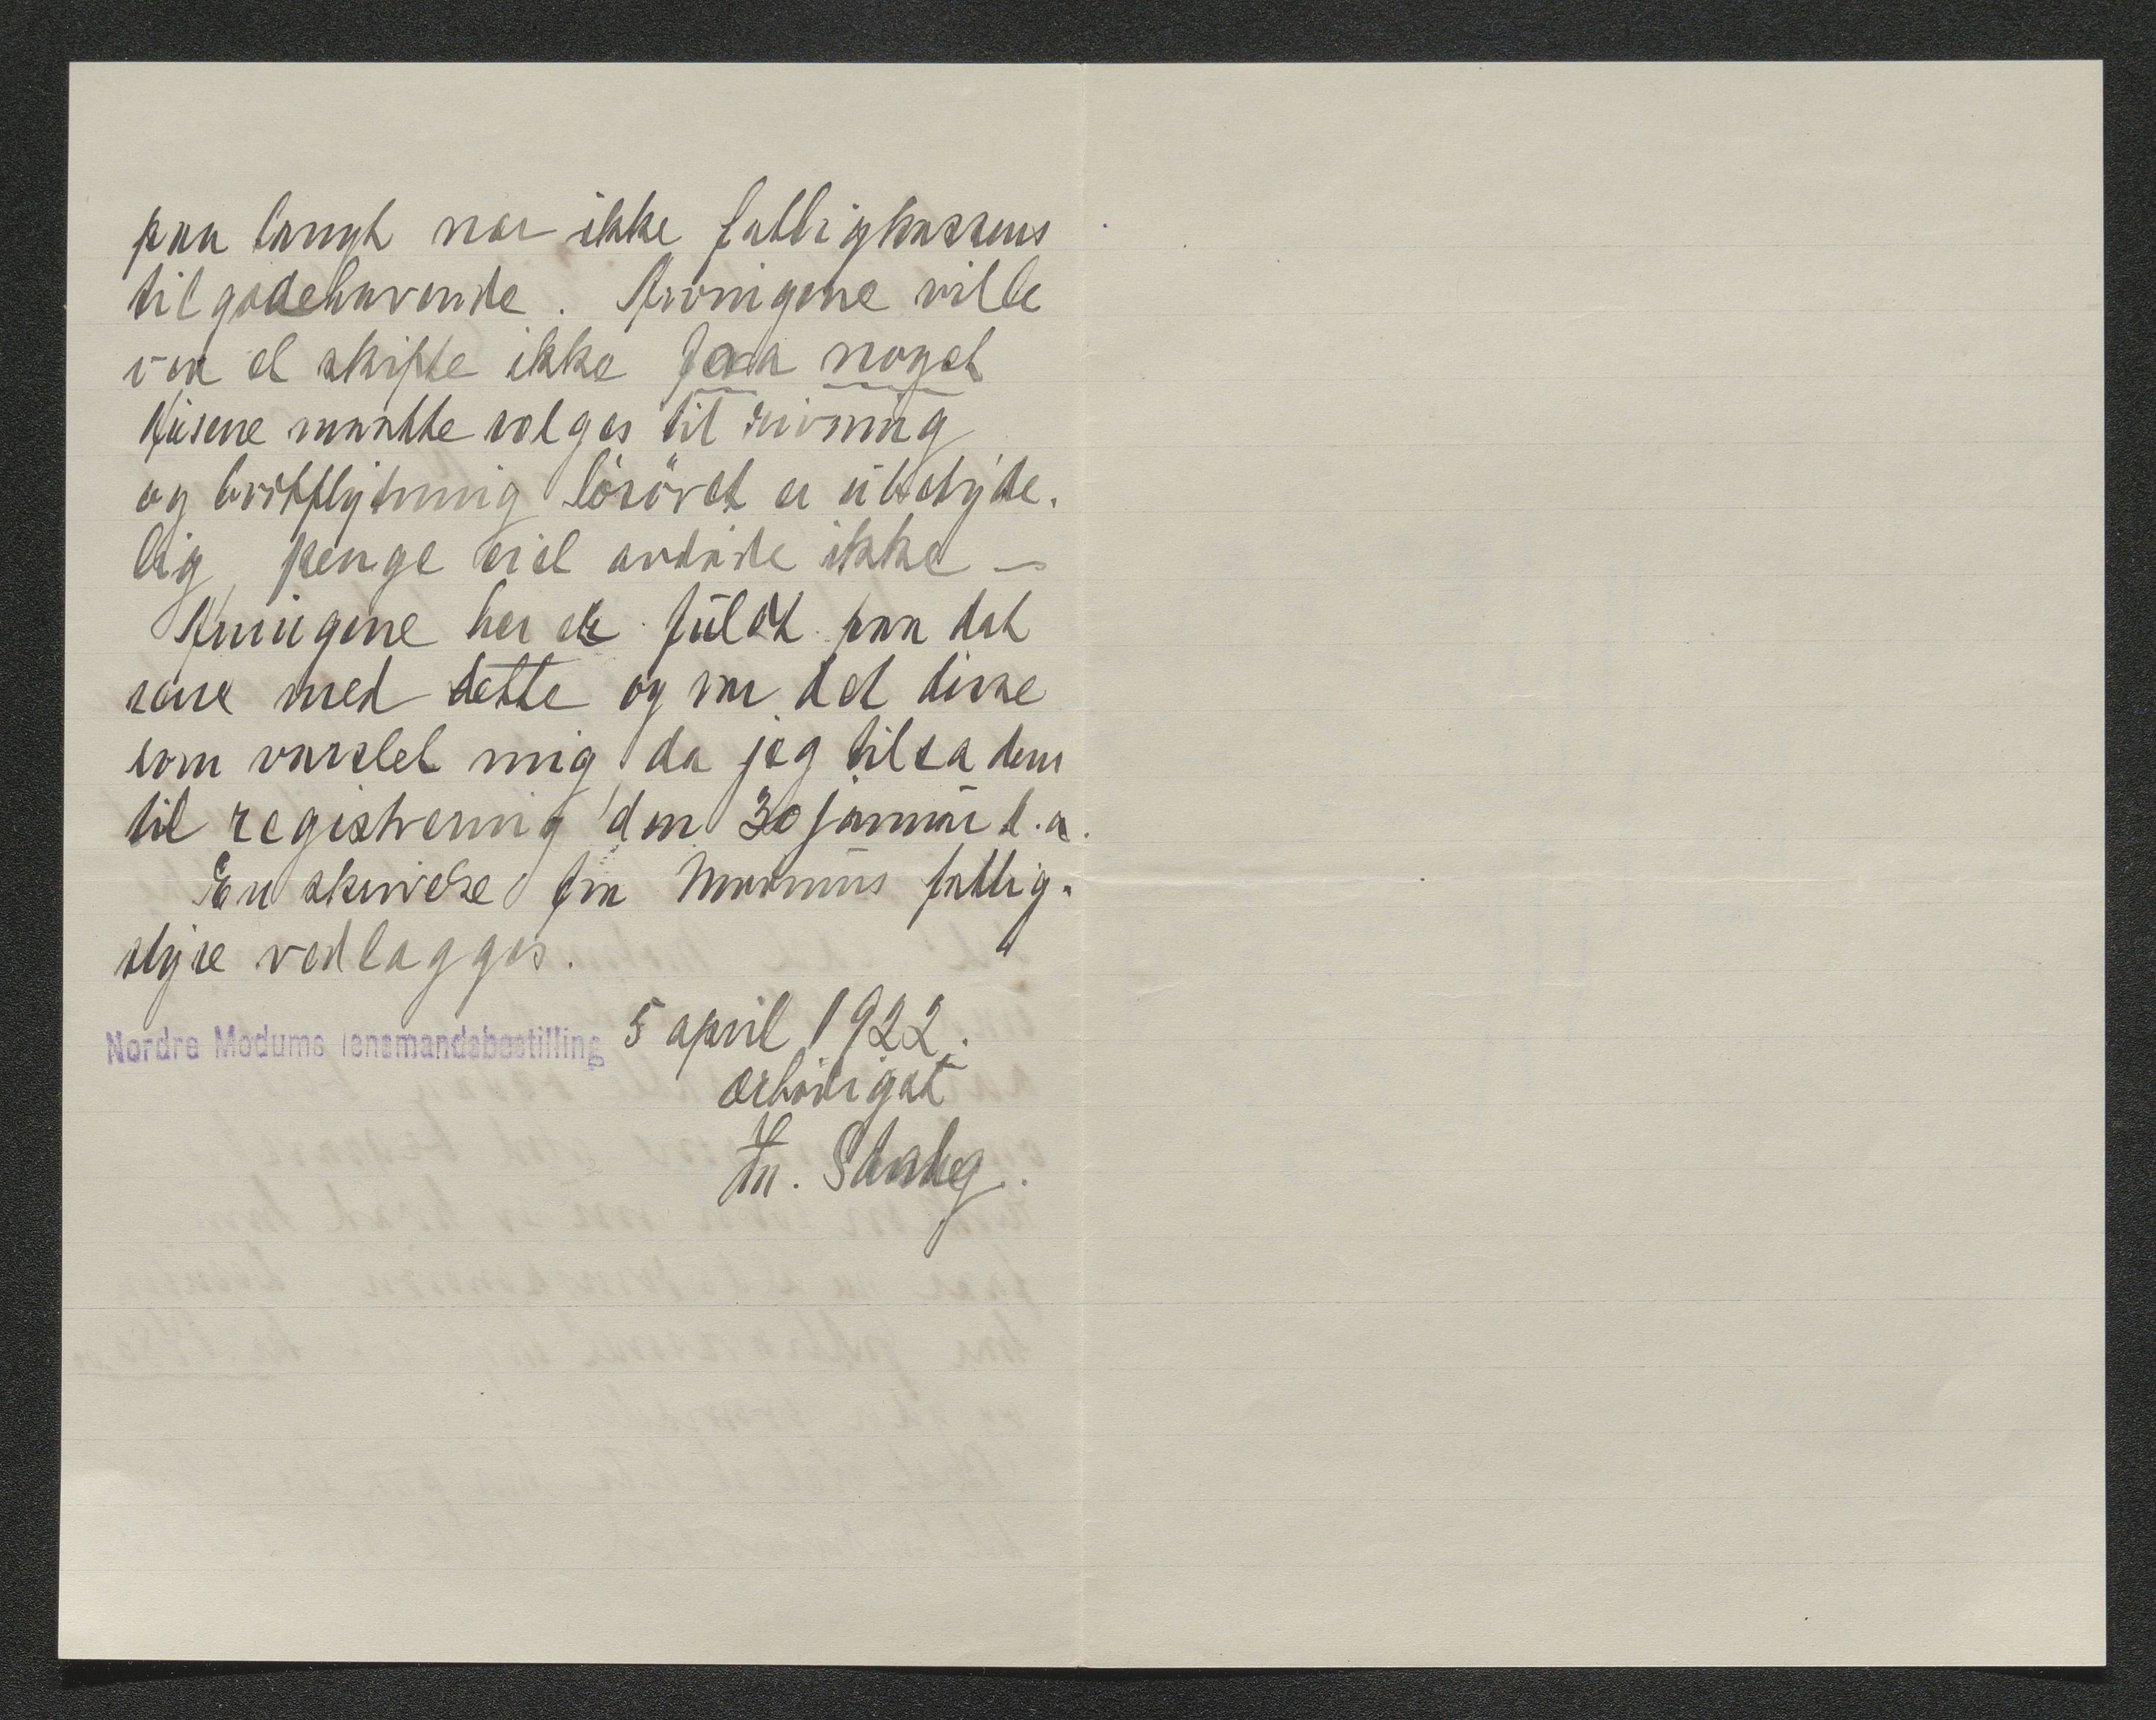 paa langt nær ikke fattigkassens
tilgodehavende. Arvingene ville
ved et skifte ikke faa noget
Husene maatte selges til rivning
og bortflytning løsöret er ubetyde-
lig, penge eiet avdøde ikke —
Arvingene her er fuldt paa det
rene med dette og var det disse
som varslet mig da jeg tilsa dem
til registrering den 30 januar d.a.
En skrivelse fra Modums fattig-
styre vedlægges.
Nordre Modums lensmandsbestilling 5 april 1922.
ærbödigst